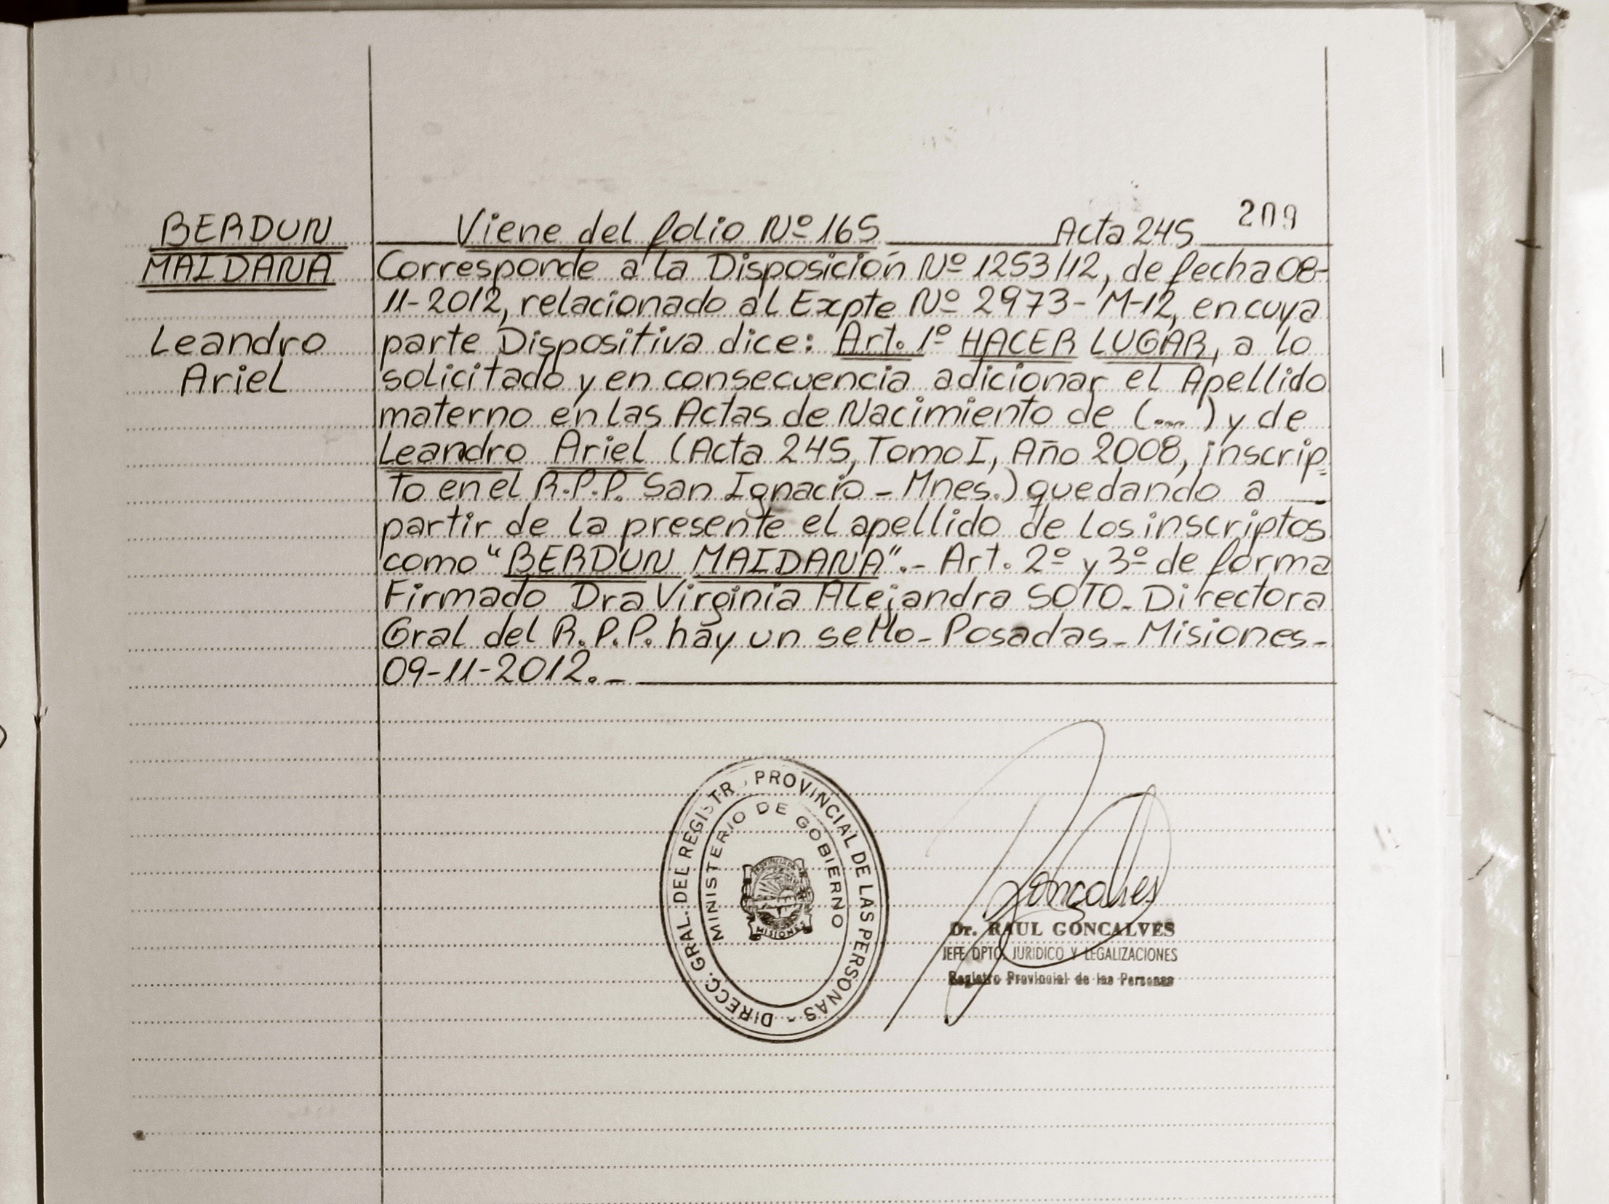 209
BERDUN
MAIDANA
Leandro
Ariel
Viene del folio Nº 165 Acta 245
Corresponde a la Disposición Nº 1253/12, de fecha 08-
11-2012, relacionado al Expte Nº 2973-M-12, en cuya
parte Dispositiva dice: Art. 1º HACER LUGAR, a lo
solicitado y en consecuencia adicionar el Apellido
materno en las Actas de Nacimiento de (....) y de
Leandro Ariel (Acta 245, Tomo I, Año 2008, inscrip-
to en el R.P.P. San Ignacio - Mnes.) quedando a
partir de la presente el apellido de los inscriptos
como "BERDUN MAIDANA".- Art. 2º y 3º de forma
Firmado Dra Virginia Alejandra SOTO - Directora
Gral del R.P.P. hay un sello - Posadas - Misiones -
09-11-2012.-
DIRECC. GRAL. DEL REGISTR. PROVINCIAL DE LAS PERSONAS -
MINISTERIO DE GOBIERNO
MISIONES
Goncalves
Dr. RAUL GONCALVES
JEFE DPTO. JURIDICO Y LEGALIZACIONES
Registro Provincial de las Personas